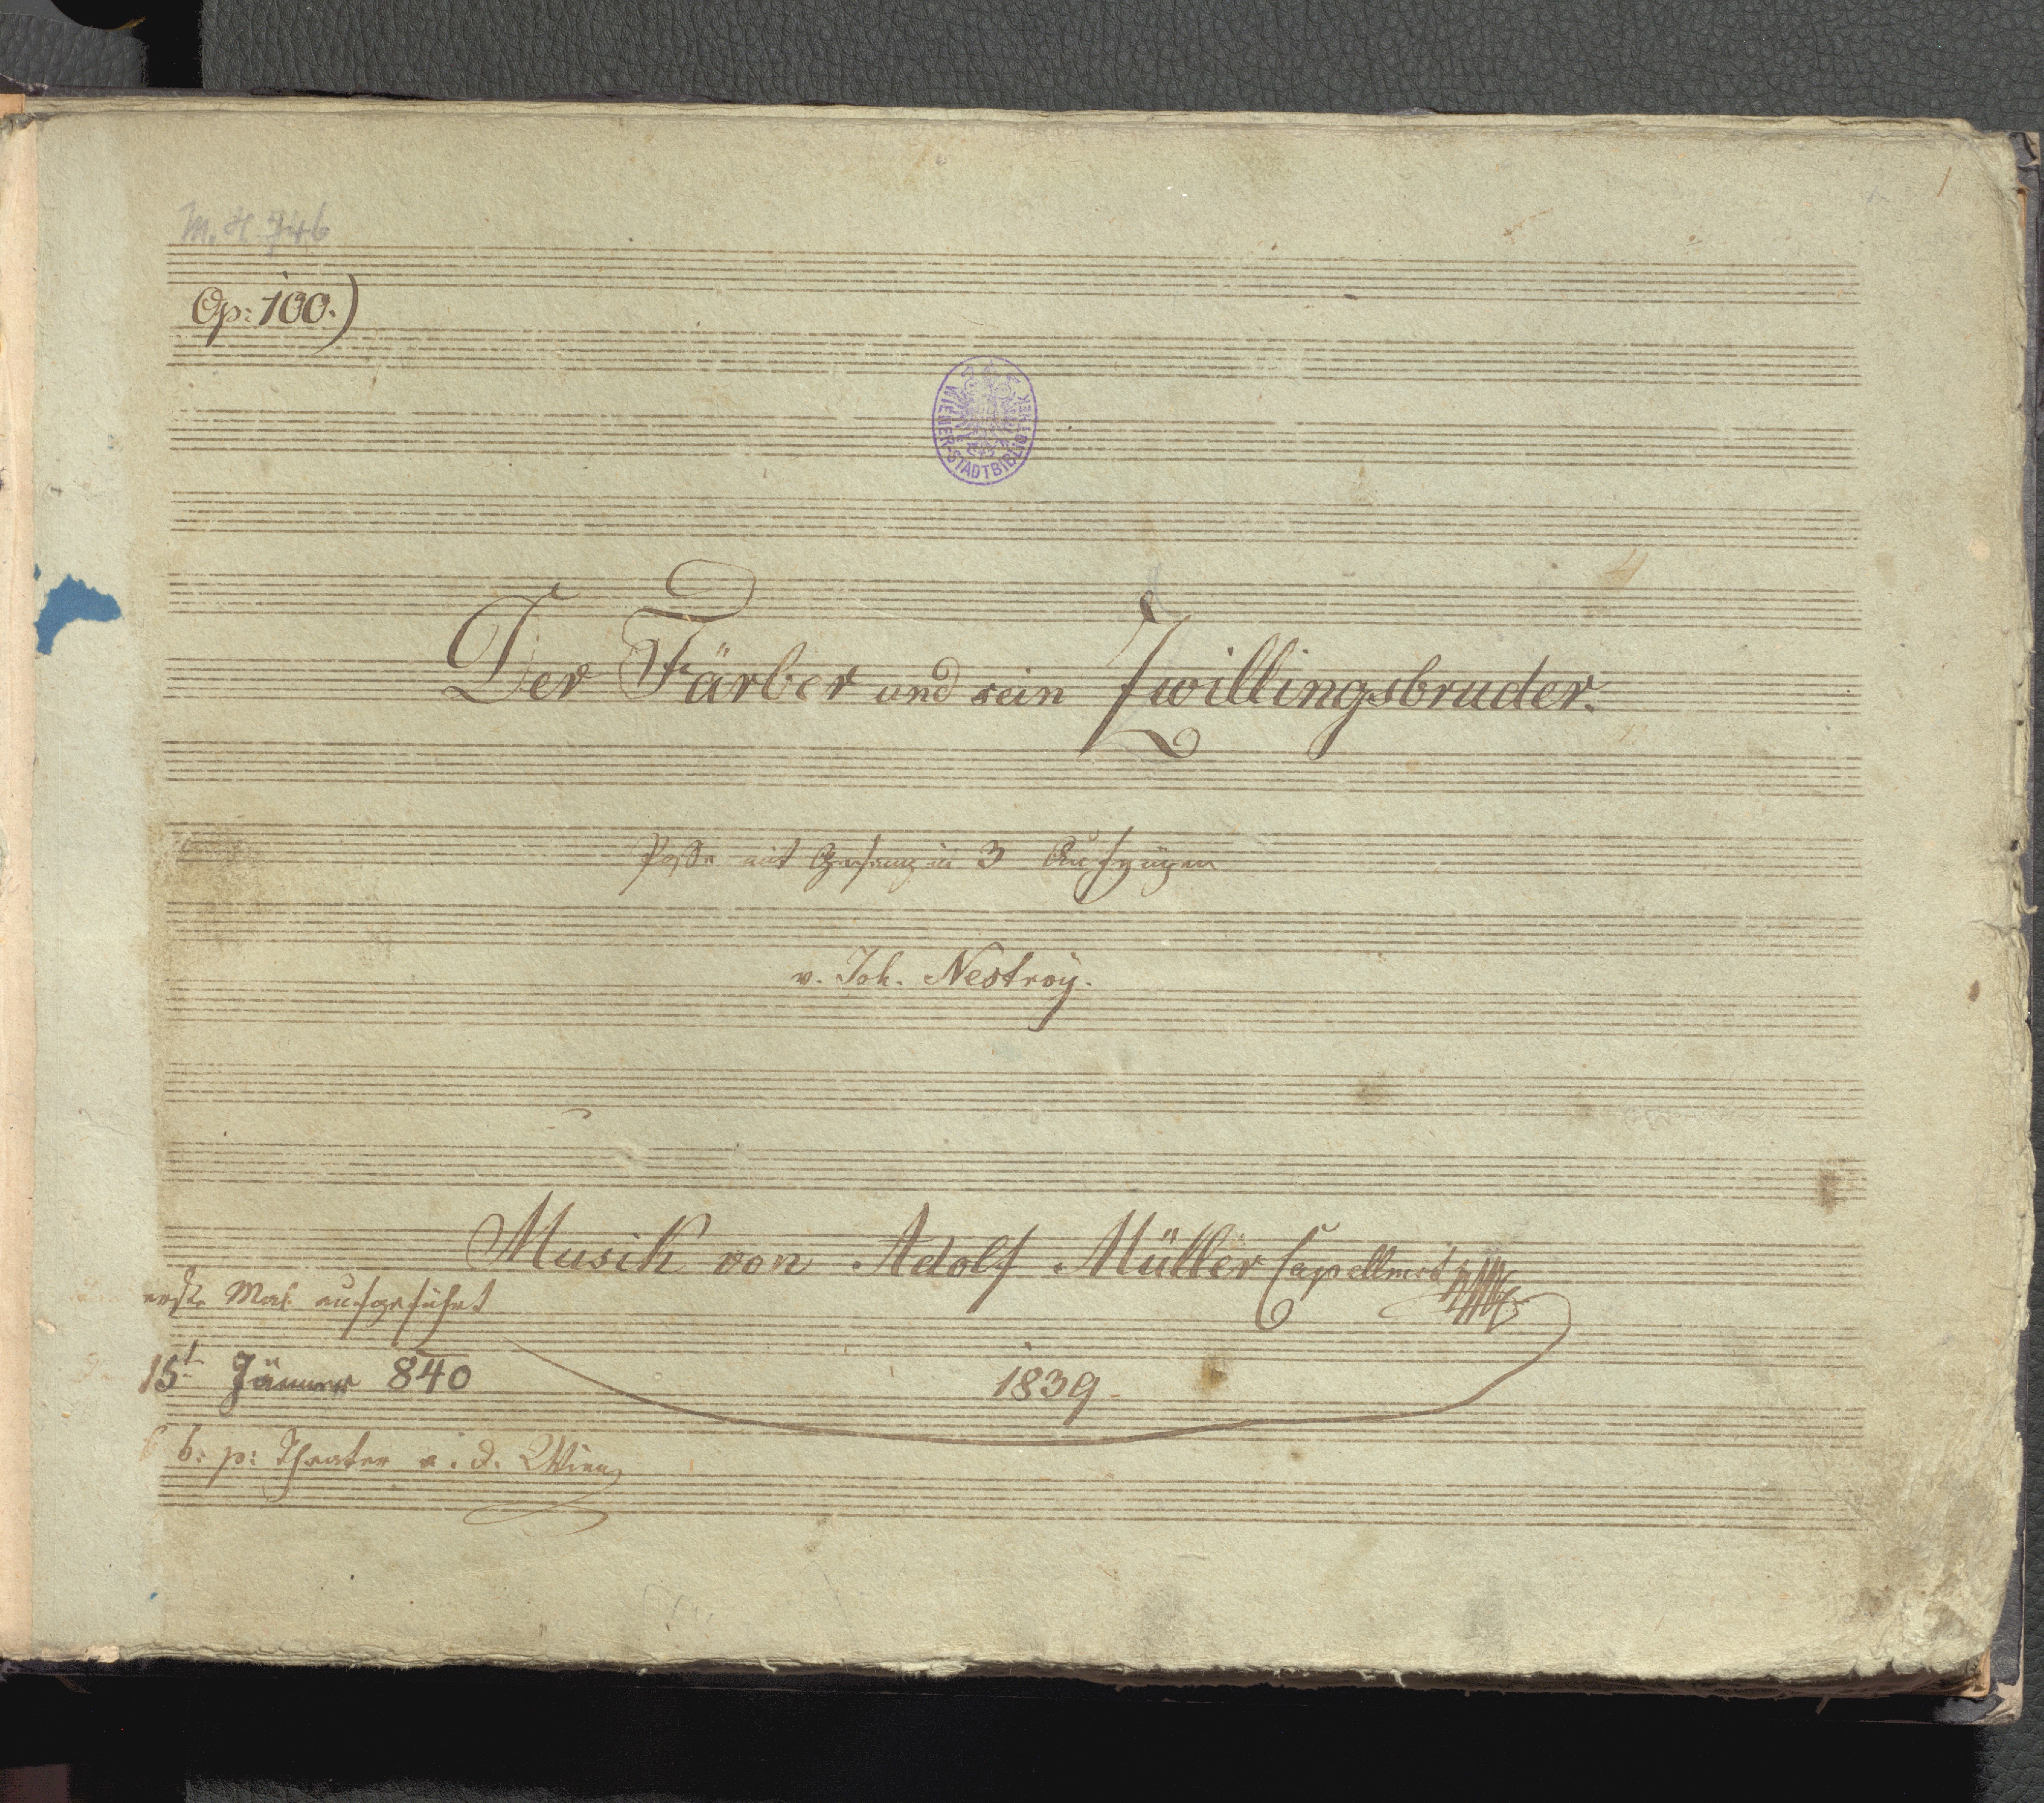 1
M. H. 746
Op: 100.)
WIENER-STADTBIBLIOTHEK
Der Färber und sein Zwillingsbruder.
Posse mit Gesang in 3 Aufzügen
v. Joh. Nestroy.
Musik von Adolf Müller Capellmst
erste Mal aufgeführt
15t Jänner 840
1839
b: p: Theater a. d. Wien